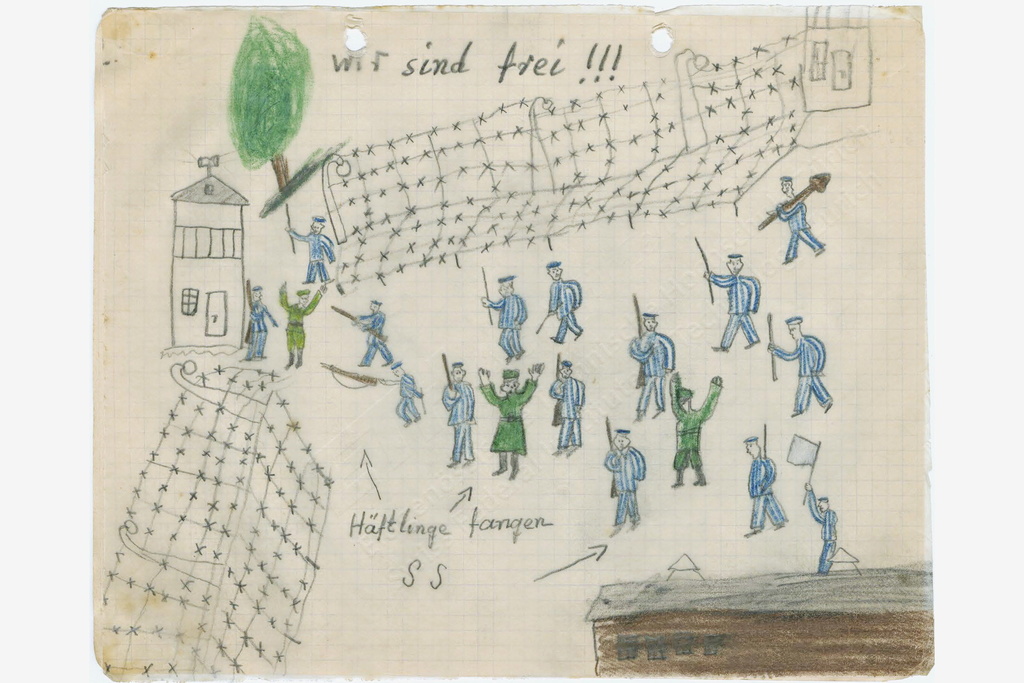 wir sind frei !!!
Häftlinge fangen
SS